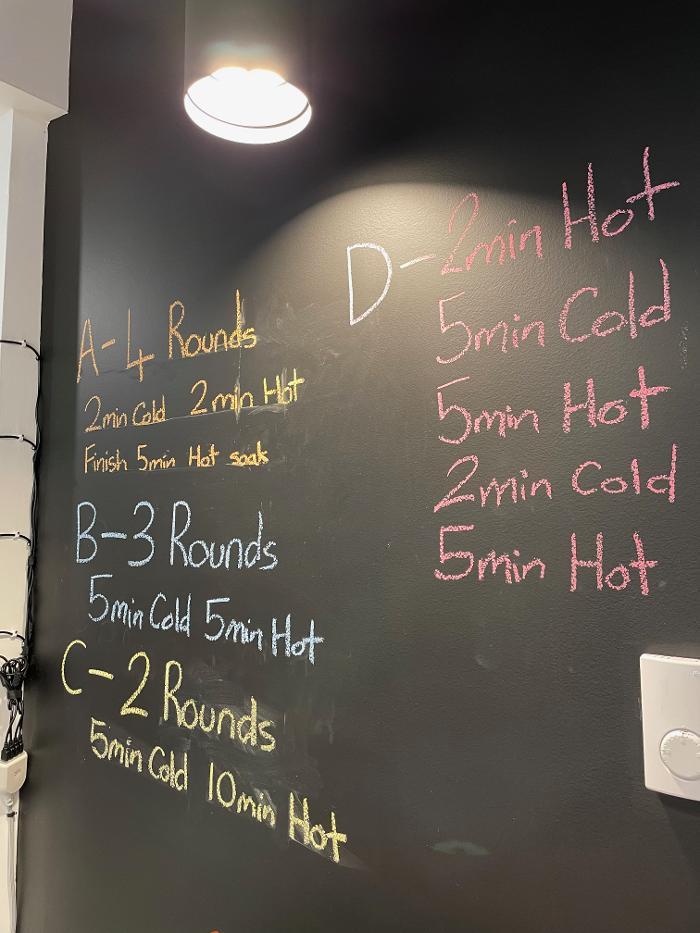 A-4 Rounds
2min Cold 2min Hot
Finish 5min Hot soak
B-3 Rounds
5min Cold 5min Hot
C-2 Rounds
5min Cold 10min Hot
D-2min Hot
5min Cold
5min Hot
2min Cold
5min Hot